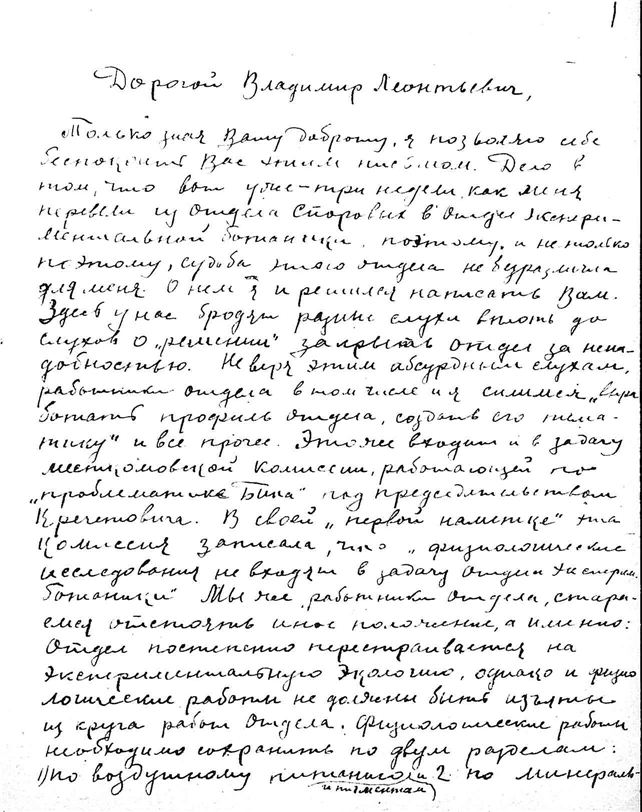 1
Дорогой Владимир Леонтьевич,
Только зная Вашу доброту, я позволяю себе
беспокоить Вас этим письмом. Дело в
том, что вот уже три недели как меня
перевели из отдела Споровых в отдел экспери-
ментальной ботаники, поэтому, и не только
поэтому, судьба этого отдела не безразлична
для меня. О нем я и решился написать Вам.
Здесь у нас бродят разные слухи вплоть до
слухов о „решении" закрыть отдел за нена-
добностью. Не веря этим абсурдным слухам,
работники отдела в том числе и я силимся „выра-
ботать профиль отдела, создать его тема-
тику" и все прочее. Это же входит и в задачу
месткомовской комиссии, работающей по
„проблематике Бина" под председательством
Кречетовича. В своей „первой наметке" эта
комиссия записала, что „физиологические
исследования не входят в задачу отдела эксперим.
ботаники" Мы же, работники отдела, стара-
емся отстоять иное положение, а именно:
Отдел постепенно перестраивается на
экспериментальную экологию, однако и физио
логические работы не должны быть изъяты
из круга работ отдела. Физиологические работы
необходимо сохранить по двум разделам:
1) по воздушному питанию и 2 по минераль-
(и пигментам)